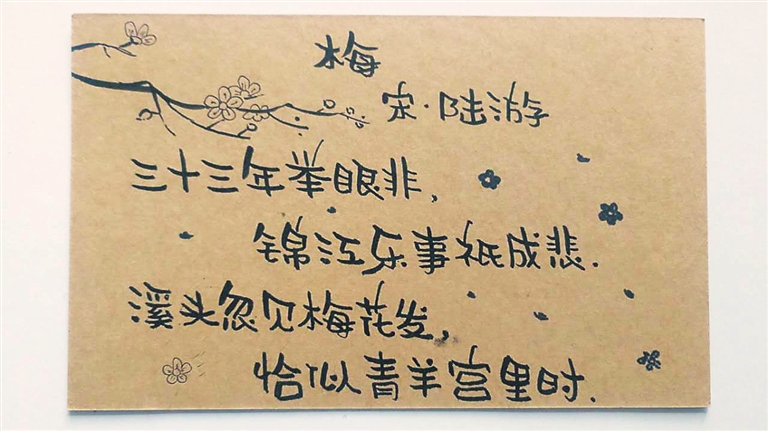 梅
宋·陆游
三十三年举眼非，
锦江乐事祇成悲.
溪头忽见梅花发，
恰似青羊宫里时.